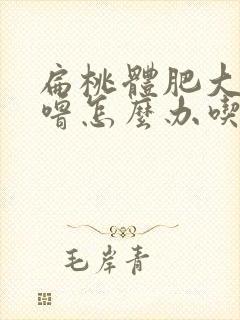 扁桃體肥大
嘈怎麼办喫
毛岸青